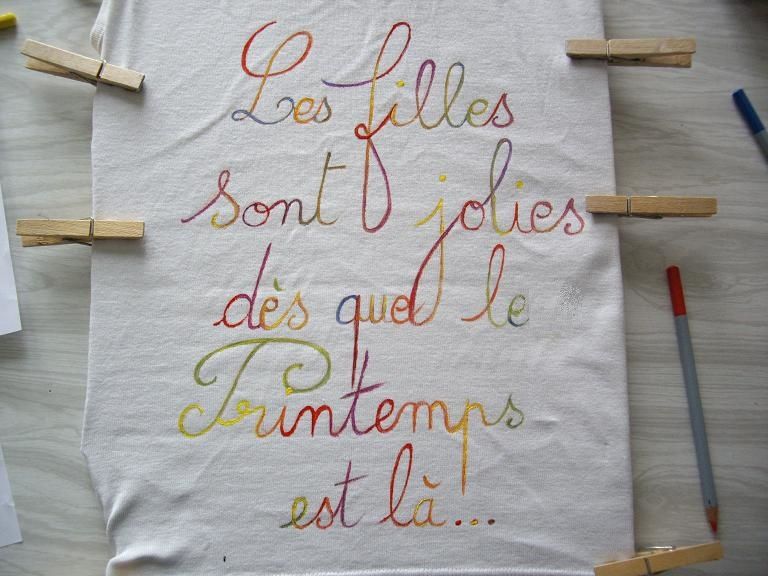 Les filles
sont jolies
dès que le
Printemps
est là...